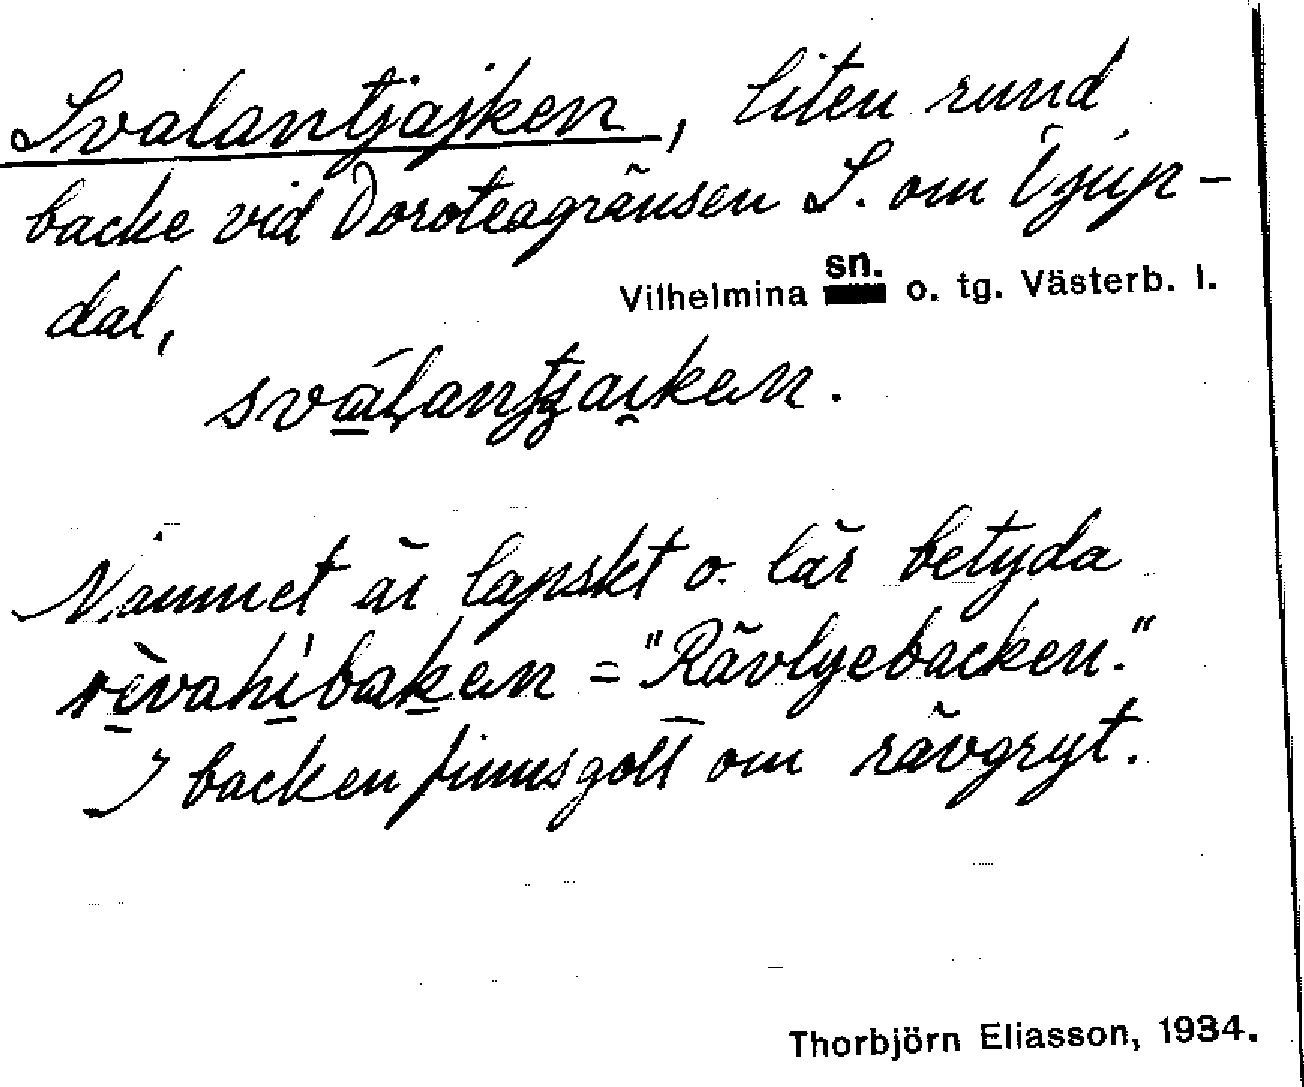 Svalantjajken, liten rund
backe vid Doroteagränsen S. om Djup-
dal,
Vilhelmina sn. o. tg. Västerb. l.
Namnet är lapskt o. lär betyda
= "Rävlyebacken."
I backen finns gott om rävgryt.
Thorbjörn Eliasson, 1934.